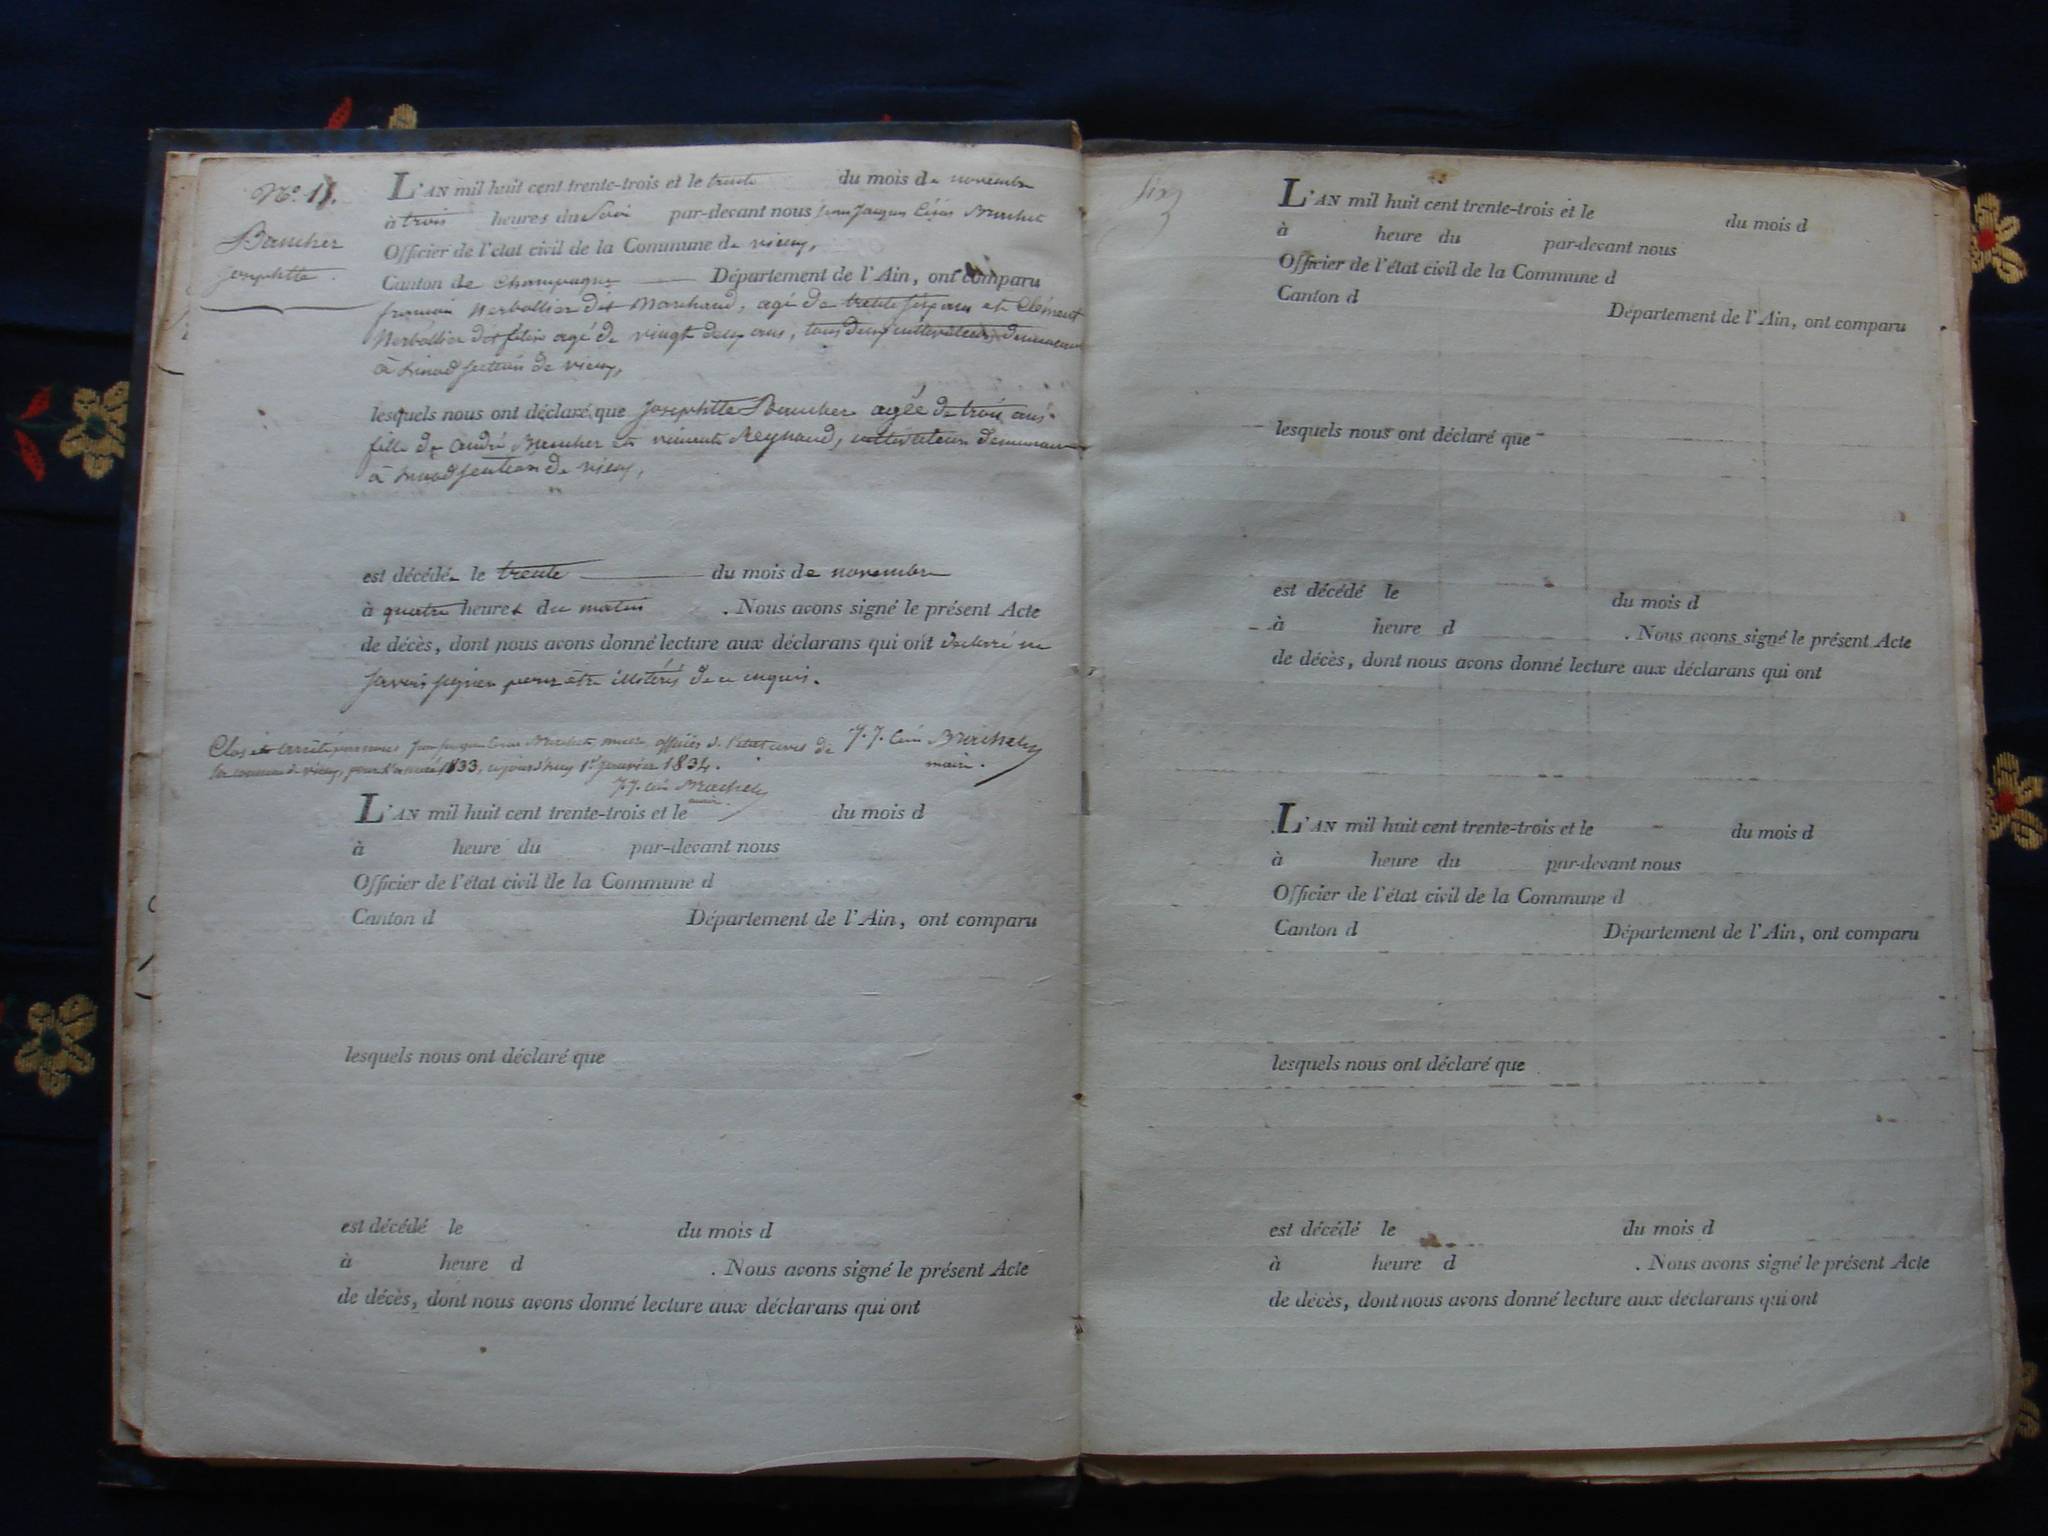 N°. 11.
Baucher
Josephtte.
L'AN mil huit cent trente-trois et le trente du mois de novembre
à trois heures du Soir par-devant nous jean Jaques Brachet
Officier de l'état civil de la Commune de vieu,
Canton de Champagne Département de l'Ain, ont comparu
dit Marchand, agé de trente six ans et Clément
agé de vingt deux ans, tous deux cultivateurs demeurant
à section de vieu,
lesquels nous ont déclaré que Josephtte Baucher agée de trois ans
fille de andré Baucher et Reynaud, cultivateurs demeurant
à section de vieu,
est décédée le trente du mois de novembre
à quatre heures du matin . Nous avons signé le présent Acte
de décès, dont nous avons donné lecture aux déclarans qui ont déclaré ne
savoir signer pour être illitérés de ce enquis.
Clos et arrêté par nous jean jaques Brachet maire officier de l'état civil de
la commune de vieu, pour l'année 1833, aujourd'huy 1er janvier 1834.
J. J. Brachet
maire.
J. J. Brachet
maire.
L'AN mil huit cent trente-trois et le du mois d
à heure du par-devant nous
Officier de l'état civil de la Commune d
Canton d Département de l'Ain, ont comparu
lesquels nous ont déclaré que
est décédé le du mois d
à heure d . Nous avons signé le présent Acte
de décès, dont nous avons donné lecture aux déclarans qui ont
six
L'AN mil huit cent trente-trois et le du mois d
à heure du par-devant nous
Officier de l'état civil de la Commune d
Canton d Département de l'Ain, ont comparu
lesquels nous ont déclaré que
est décédé le du mois d
à heure d . Nous avons signé le présent Acte
de décès, dont nous avons donné lecture aux déclarans qui ont
L'AN mil huit cent trente-trois et le du mois d
à heure du par-devant nous
Officier de l'état civil de la Commune d
Canton d Département de l'Ain, ont comparu
lesquels nous ont déclaré que
est décédé le du mois d
à heure d . Nous avons signé le présent Acte
de décès, dont nous avons donné lecture aux déclarans qui ont